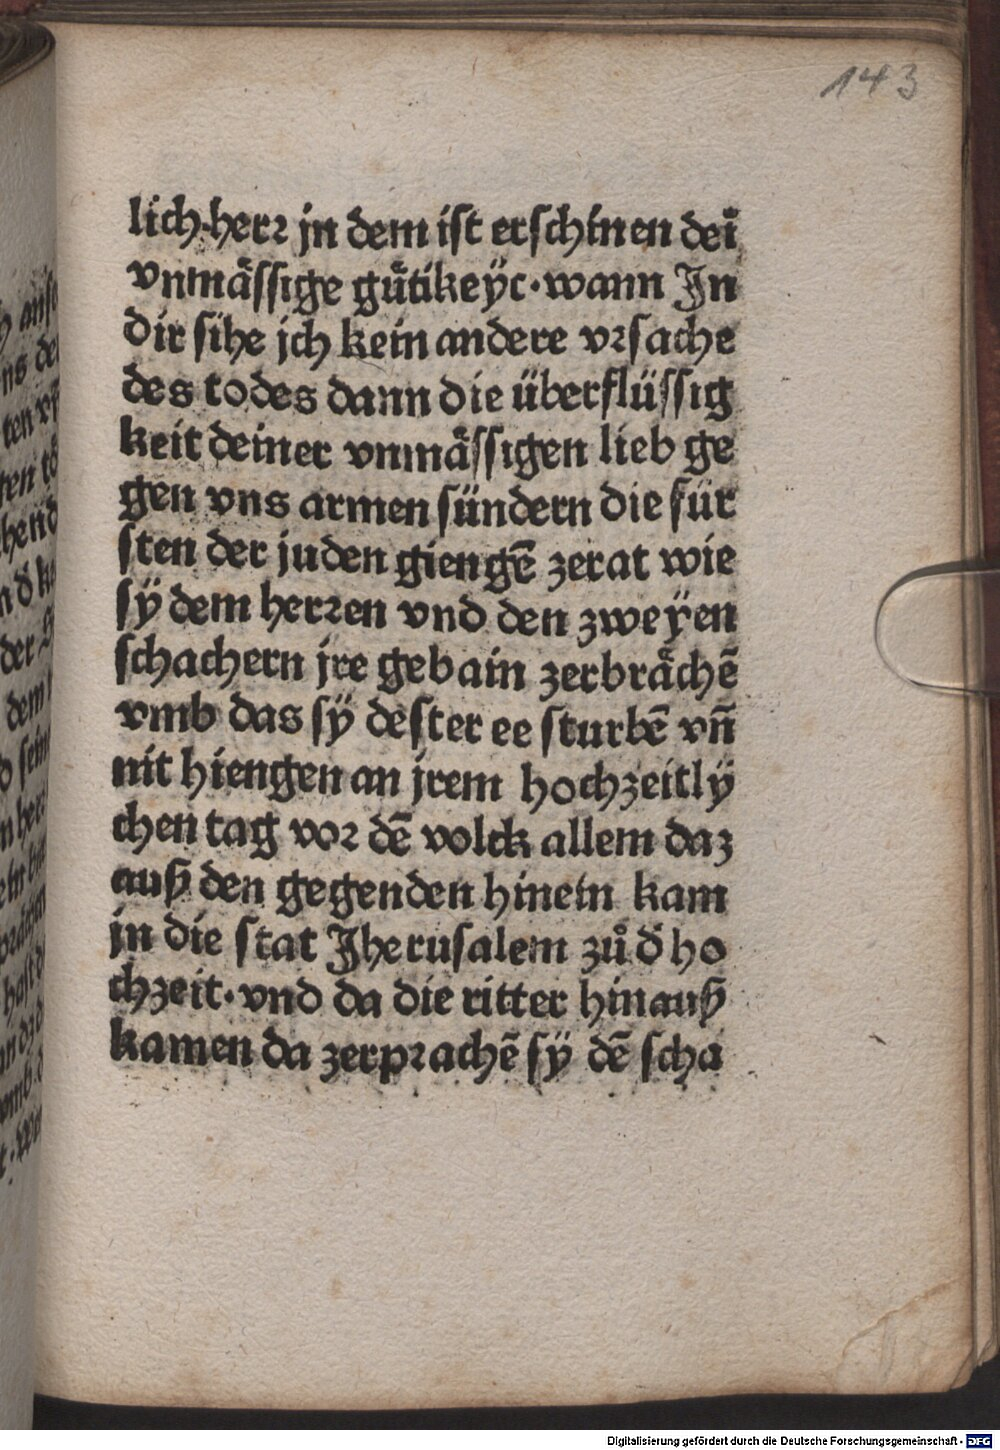 143
lich·herꝛ jn dem ist erschinen dei̅
vnmaͤssige guͤtikeÿc·wann In
dir sihe ich kein andere vꝛsache
des todes dann die überflüssig
keit deiner vnmaͤssigen lieb ge
gen vns armen sündern die für
sten der juden giengē zerat wie
sÿ dem herꝛen vnd den zweÿen
schachern jre gebain zerbraͤchē
vmb das sÿ dester ee sturbē vn̄
nit hiengen an jrem hochzeitlÿ
chen tag voꝛ dē volck allem daz
auß den gegenden hinein kam
jn die stat Jherusalem zů d̕ ho
chzeit·vnd da die ritter hinauß
kamen da zerpꝛachē sÿ dē scha
Digitalisierung gefördert durch die Deutsche Forschungsgemeinschaft - DFG